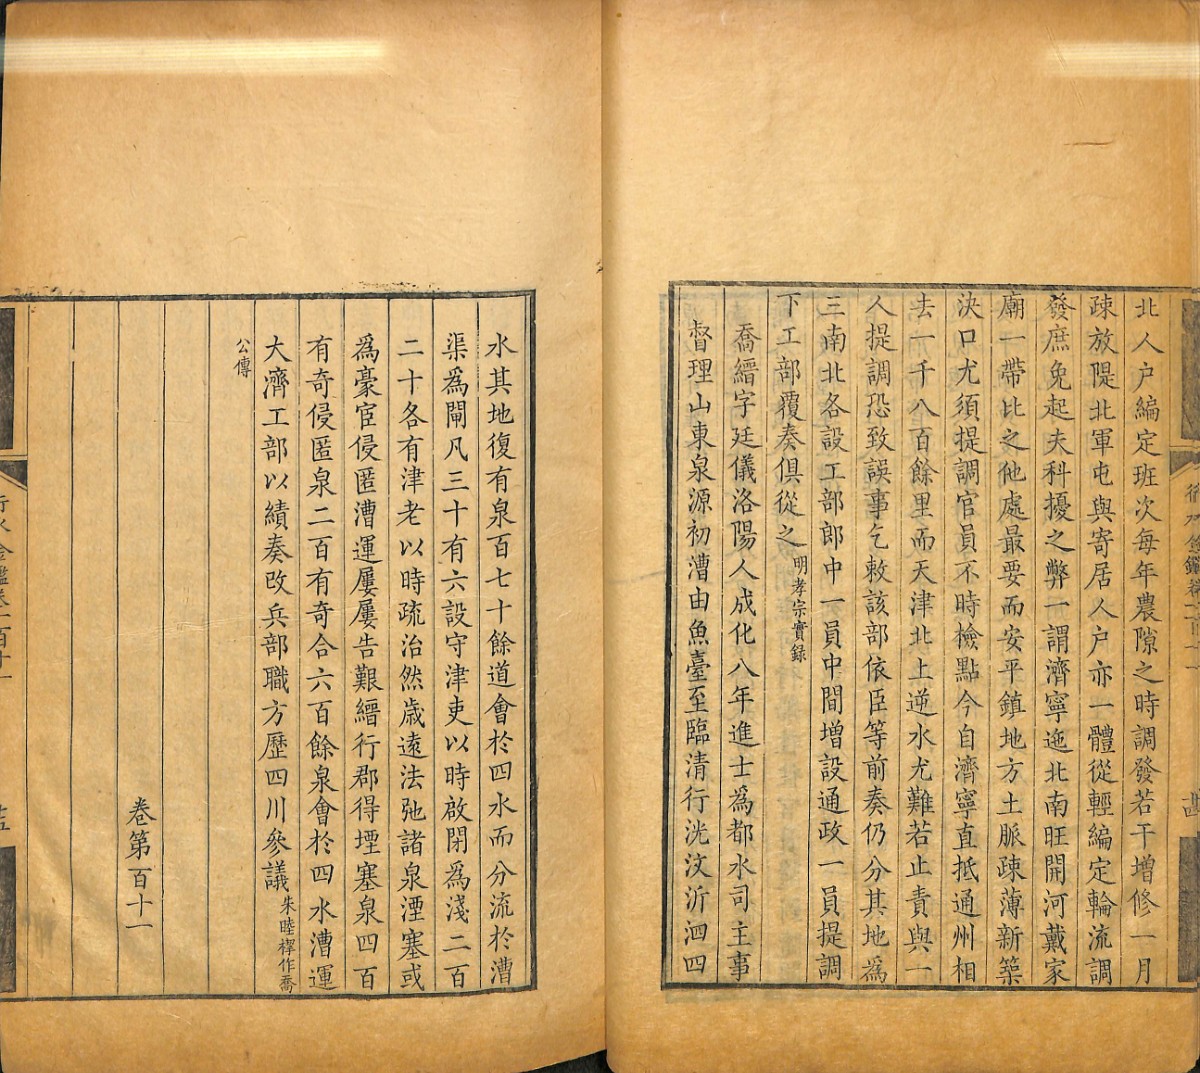 北人户編定班次每年農隙之時調發若干增修一月
疎放隄北軍屯與寄居人户亦一體從輕編定輪流調
發庶免起夫科擾之弊一謂濟寧迤北南旺開河戴家
廟一帶比之他處最要而安平鎮地方土脈疎薄新築
決口尤須提調官員不時檢點今自濟寧直抵通州相
去一千八百餘里而天津北上逆水尤難若止責與一
人提調恐致誤事乞敕該部依臣等前奏仍分其地為
三南北各設工部郎中一員中間增設通政一員提調
下工部覆奏俱從之明孝宗實録
喬縉字廷儀洛陽人成化八年進士為都水司主事
督理山東泉源初漕由魚臺至臨清行洸汶沂泗四
水其地復有泉百七十餘道會於四水而分流於漕
渠為閘凡三十有六設守津吏以時啟閉為淺二百
二十各有津老以時疏治然歲遠法弛諸泉湮塞或
為豪宦侵匿漕運屢屢告艱縉行郡得堙塞泉四百
有奇侵匿泉二百有奇合六百餘泉會於四水漕運
大濟工部以績奏改兵部職方歷四川參議朱睦㮮作喬
公傳
卷第百十一
行水金鑑卷一百十一